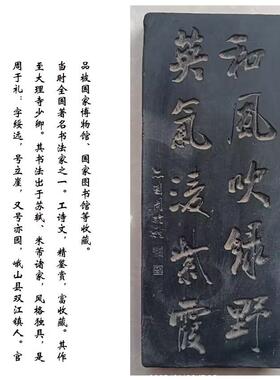 周于礼：字绥远，号立崖，又号亦园，峨山县双江镇人。官
至大理寺少卿。其书法出于苏轼、米芾诸家，风格独具，是
当时全国著名书法家之一。工诗文，精鉴赏，富收藏。其作
品被国家博物馆、国家图书馆等收藏。
和風吹绿野
英氣凌紫霞